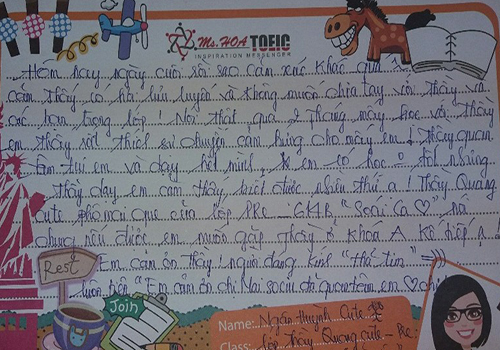 Ms. HOA TOEIC
INSPIRATION MESSENGER
Hôm nay ngày cuối rồi sao cảm xúc khác quá
cảm thấy có hơi lưu luyến và không muốn chia tay với thầy và
các bạn trong lớp ! Nói thật qua 2 tháng mấy học với thầy
em thấy rất thích sự truyền cảm hứng cho mấy em ! Thầy quan
tâm tụi em và dạy hết mình, em có học ở
thầy dạy em cảm thấy biết được nhiều thứ ạ ! Thầy Quang
cute phô mai que của lớp PRE "Soái Ca ♡", nói
chung nếu được em muốn gặp thầy ở khóa A kế tiếp ạ !
Em cảm ơn thầy ! người đáng kính "thả tim"
luôn "Em cảm ơn chị Mai đã quan tâm em ♡ chị
Rest
Join
Name: Ngân Huỳnh Cute
Class: lớp Thầy Quang cute - Pre